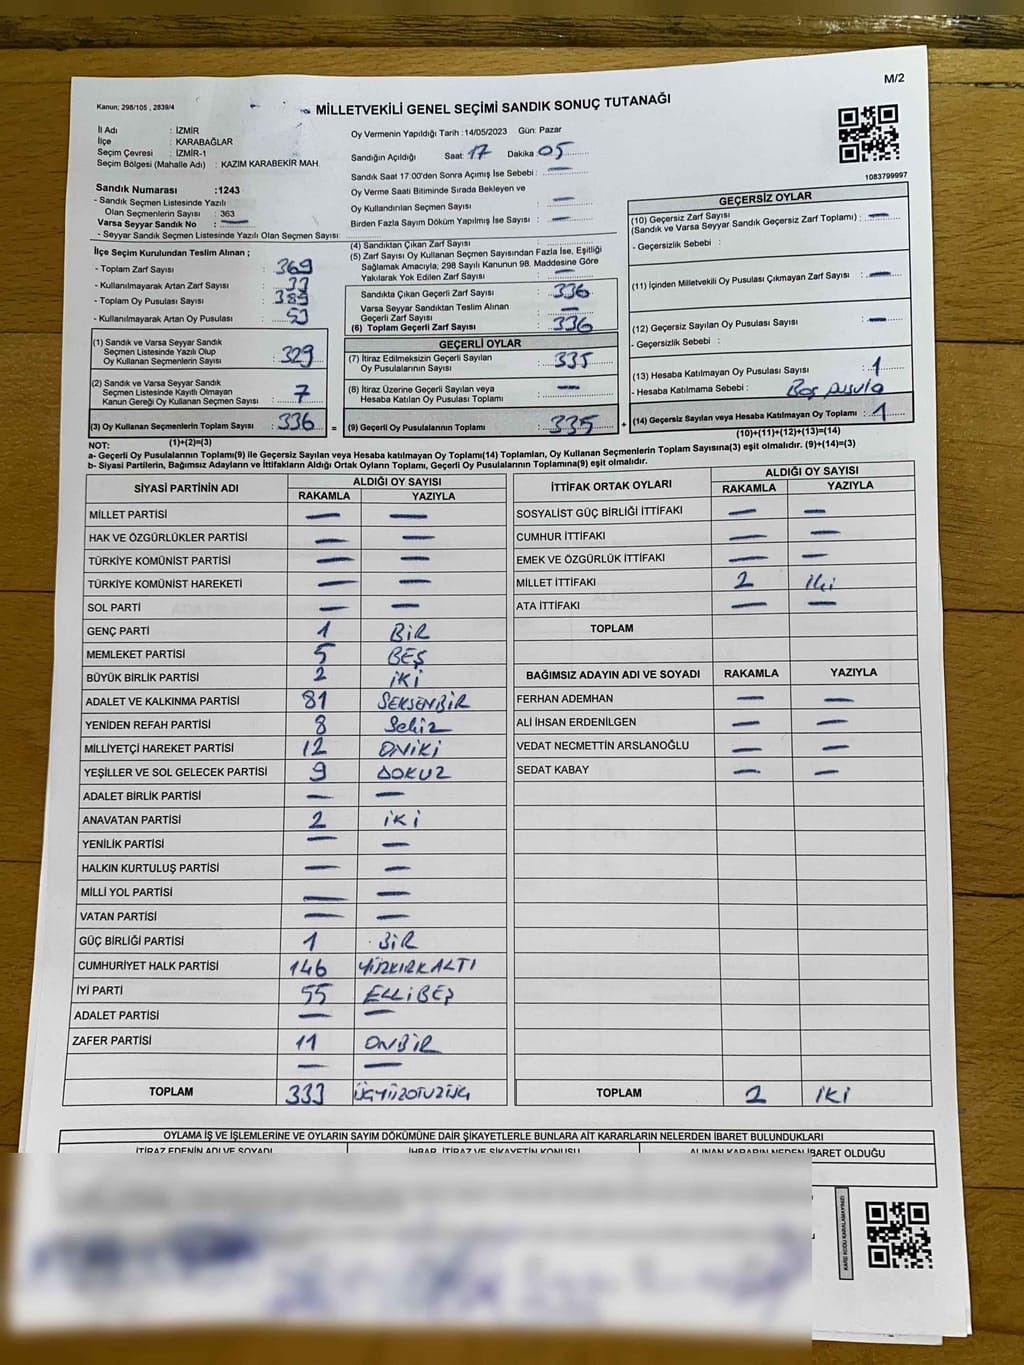 M/2
Kanun; 298/105 , 2839/4
MİLLETVEKİLİ GENEL SEÇİMİ SANDIK SONUÇ TUTANAĞI
İl Adı : İZMİR
İlçe : KARABAĞLAR
Seçim Çevresi : İZMİR-1
Seçim Bölgesi (Mahalle Adı) : KAZIM KARABEKİR MAH.
Sandık Numarası :1243
- Sandık Seçmen Listesinde Yazılı
Olan Seçmenlerin Sayısı : 363
Varsa Seyyar Sandık No : —
- Seyyar Sandık Seçmen Listesinde Yazılı Olan Seçmen Sayısı:
Oy Vermenin Yapıldığı Tarih :14/05/2023 Gün: Pazar
Sandığın Açıldığı Saat: 17 Dakika: 05
Sandık Saat 17:00'den Sonra Açımış İse Sebebi : —
Oy Verme Saati Bitiminde Sırada Bekleyen ve
Oy Kullandırılan Seçmen Sayısı : —
Birden Fazla Sayım Döküm Yapılmış İse Sayısı : —
1083799997
İlçe Seçim Kurulundan Teslim Alınan ;
- Toplam Zarf Sayısı : 369
- Kullanılmayarak Artan Zarf Sayısı : 33
- Toplam Oy Pusulası Sayısı : 389
- Kullanılmayarak Artan Oy Pusulası : 53
(1) Sandık ve Varsa Seyyar Sandık
Seçmen Listesinde Yazılı Olup
Oy Kullanan Seçmenlerin Sayısı : 329
(2) Sandık ve Varsa Seyyar Sandık
Seçmen Listesinde Kayıtlı Olmayan
Kanun Gereği Oy Kullanan Seçmen Sayısı : 7
(3) Oy Kullanan Seçmenlerin Toplam Sayısı : 336
(4) Sandıktan Çıkan Zarf Sayısı :
(5) Zarf Sayısı Oy Kullanan Seçmen Sayısından Fazla İse, Eşitliği
Sağlamak Amacıyla; 298 Sayılı Kanunun 98. Maddesine Göre
Yakılarak Yok Edilen Zarf Sayısı : —
Sandıkta Çıkan Geçerli Zarf Sayısı : 336
Varsa Seyyar Sandıktan Teslim Alınan
Geçerli Zarf Sayısı : —
(6) Toplam Geçerli Zarf Sayısı : 336
GEÇERLİ OYLAR
(7) İtiraz Edilmeksizin Geçerli Sayılan
Oy Pusulalarının Sayısı : 335
(8) İtiraz Üzerine Geçerli Sayılan veya
Hesaba Katılan Oy Pusulası Toplamı : —
= (9) Geçerli Oy Pusulalarının Toplamı : 335 +
GEÇERSİZ OYLAR
(10) Geçersiz Zarf Sayısı
(Sandık ve Varsa Seyyar Sandık Geçersiz Zarf Toplamı) : —
- Geçersizlik Sebebi :
(11) İçinden Milletvekili Oy Pusulası Çıkmayan Zarf Sayısı : —
(12) Geçersiz Sayılan Oy Pusulası Sayısı : —
- Geçersizlik Sebebi :
(13) Hesaba Katılmayan Oy Pusulası Sayısı : 1
- Hesaba Katılmama Sebebi : Boş pusula
(14) Geçersiz Sayılan veya Hesaba Katılmayan Oy Toplamı : 1
NOT: (1)+(2)=(3) (10)+(11)+(12)+(13)=(14)
a- Geçerli Oy Pusulalarının Toplamı(9) ile Geçersiz Sayılan veya Hesaba katılmayan Oy Toplamı(14) Toplamları, Oy Kullanan Seçmenlerin Toplam Sayısına(3) eşit olmalıdır. (9)+(14)=(3)
b- Siyasi Partilerin, Bağımsız Adayların ve İttifakların Aldığı Ortak Oyların Toplamı, Geçerli Oy Pusulalarının Toplamına(9) eşit olmalıdır.
SİYASİ PARTİNİN ADI ALDIĞI OY SAYISI
RAKAMLA YAZIYLA
MİLLET PARTİSİ — —
HAK VE ÖZGÜRLÜKLER PARTİSİ — —
TÜRKİYE KOMÜNİST PARTİSİ — —
TÜRKİYE KOMÜNİST HAREKETİ — —
SOL PARTİ — —
GENÇ PARTİ 1 BİR
MEMLEKET PARTİSİ 5 BEŞ
BÜYÜK BİRLİK PARTİSİ 2 İKİ
ADALET VE KALKINMA PARTİSİ 81 SEKSENBİR
YENİDEN REFAH PARTİSİ 8 Sekiz
MİLLİYETÇİ HAREKET PARTİSİ 12 ONİKİ
YEŞİLLER VE SOL GELECEK PARTİSİ 9 DOKUZ
ADALET BİRLİK PARTİSİ — —
ANAVATAN PARTİSİ 2 İKİ
YENİLİK PARTİSİ — —
HALKIN KURTULUŞ PARTİSİ — —
MİLLİ YOL PARTİSİ — —
VATAN PARTİSİ — —
GÜÇ BİRLİĞİ PARTİSİ 1 BİR
CUMHURİYET HALK PARTİSİ 146 YÜZKIRKALTI
İYİ PARTİ 55 ELLİBEŞ
ADALET PARTİSİ — —
ZAFER PARTİSİ 11 ONBİR
— —
TOPLAM 333 ÜÇYÜZOTUZÜÇ
İTTİFAK ORTAK OYLARI ALDIĞI OY SAYISI
RAKAMLA YAZIYLA
SOSYALİST GÜÇ BİRLİĞİ İTTİFAKI — —
CUMHUR İTTİFAKI — —
EMEK VE ÖZGÜRLÜK İTTİFAKI — —
MİLLET İTTİFAKI 2 iki
ATA İTTİFAKI — —
TOPLAM
BAĞIMSIZ ADAYIN ADI VE SOYADI RAKAMLA YAZIYLA
FERHAN ADEMHAN — —
ALİ İHSAN ERDENİLGEN — —
VEDAT NECMETTİN ARSLANOĞLU — —
SEDAT KABAY — —
TOPLAM 2 İKİ
OYLAMA İŞ VE İŞLEMLERİNE VE OYLARIN SAYIM DÖKÜMÜNE DAİR ŞİKAYETLERLE BUNLARA AİT KARARLARIN NELERDEN İBARET BULUNDUKLARI
İTİRAZ EDENİN ADI VE SOYADI İHBAR, İTİRAZ VE ŞİKAYETİN KONUSU ALINAN KARARIN NEDEN İBARET OLDUĞU
KARE KODU KARALAMAYINIZ!